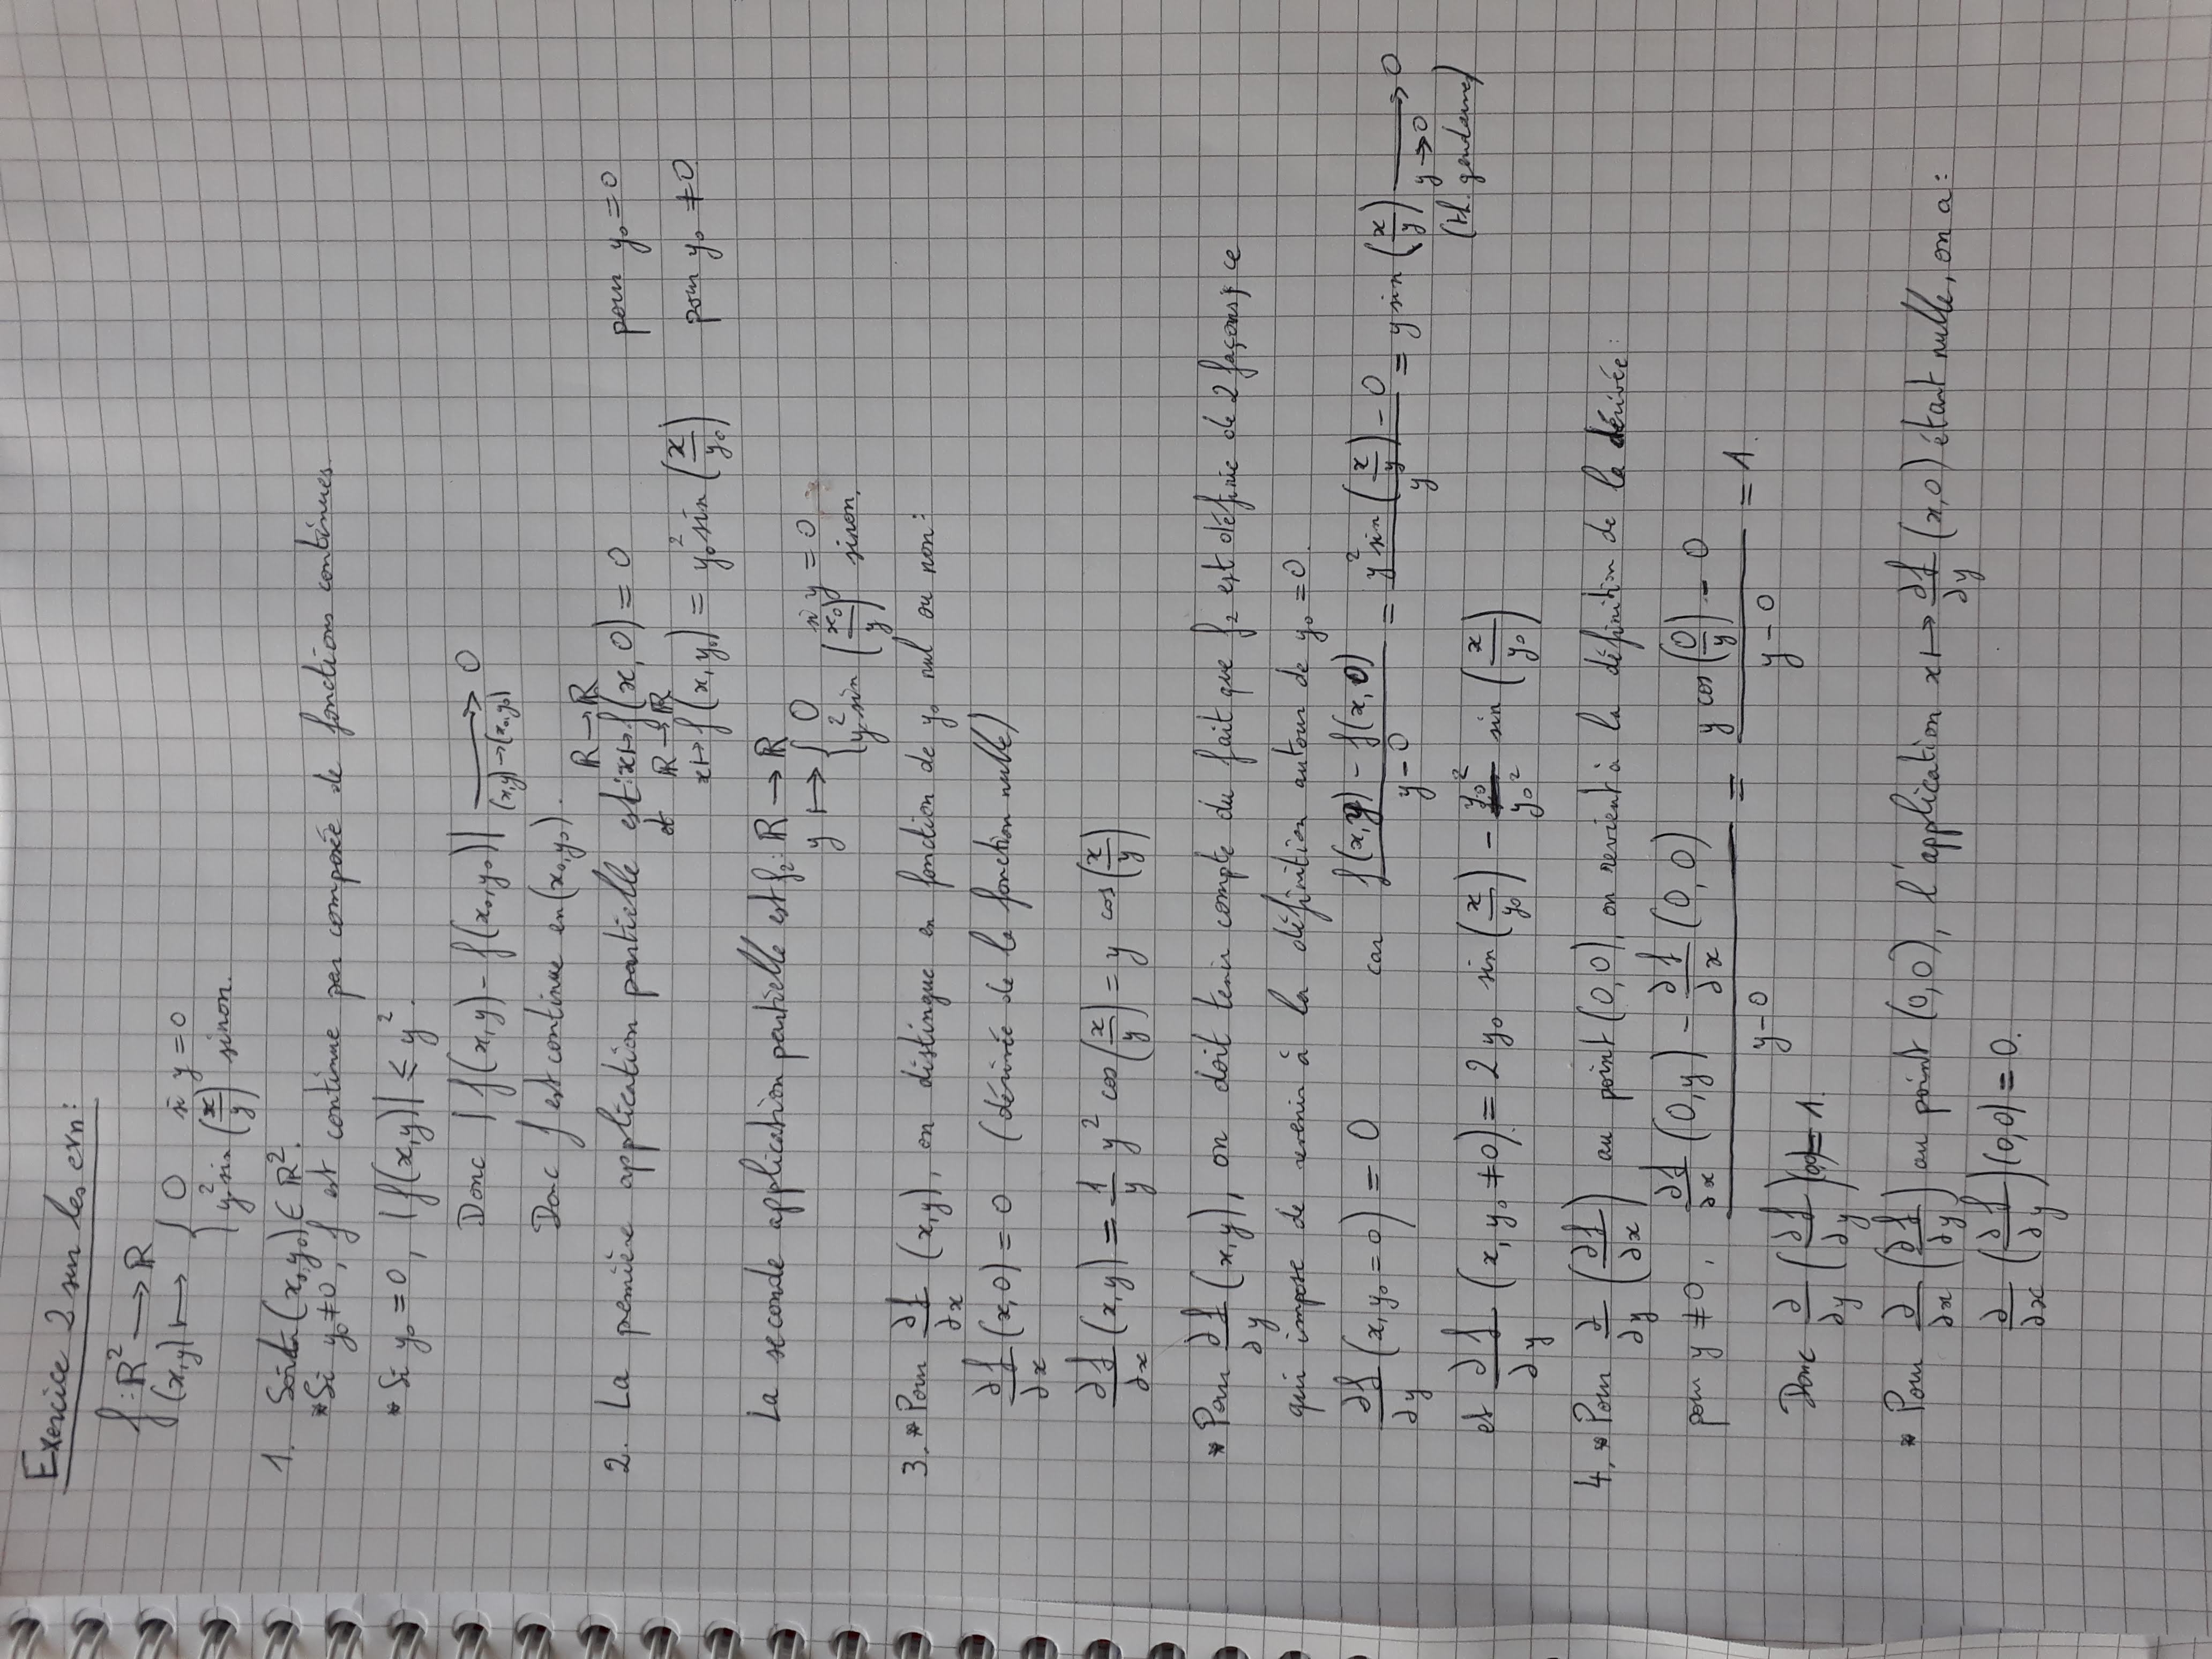 Exercice 2 sur les evn:
f: ℝ² → ℝ
(x,y) ↦ { 0 si y = 0
{ y² sin (x/y) sinon.
1. Soient (x₀,y₀) ∈ ℝ².
* Si y₀ ≠ 0, f est continue par composée de fonctions continues.
* Si y₀ = 0, |f(x,y)| ≤ y².
Donc |f(x,y) - f(x₀,y₀)| → 0
(x,y)→(x₀,y₀)
Donc f est continue en (x₀,y₀).
2. La première application partielle est: ℝ → ℝ
x ↦ f(x,0) = 0 pour y₀ = 0
et ℝ → ℝ
x ↦ f(x,y₀) = y₀² sin (x/y₀) pour y₀ ≠ 0
La seconde application partielle est f₂: ℝ → ℝ
y ↦ { 0 si y = 0
{ y² sin (x₀/y) sinon.
3. * Pour ∂f/∂x (x,y), on distingue en fonction de y₀ nul ou non:
∂f/∂x (x,0) = 0 (dérivée de la fonction nulle)
∂f/∂x (x,y) = 1/y y² cos (x/y) = y cos (x/y)
* Pour ∂f/∂y (x,y), on doit tenir compte du fait que f₂ est définie de 2 façons, ce
qui impose de revenir à la définition autour de y₀ = 0.
∂f/∂y (x,y₀=0) = 0 car (f(x,y) - f(x,0))/(y - 0) = (y² sin (x/y) - 0)/y = y sin (x/y) → 0
y→0
(th. gendarmes)
et ∂f/∂y (x,y₀≠0) = 2 y₀ sin (x/y₀) - y₀²/y₀² sin (x/y₀)
4. * Pour ∂/∂y (∂f/∂x) au point (0,0), on revient à la définition de la dérivée:
pour y ≠ 0, (∂f/∂x (0,y) - ∂f/∂x (0,0))/(y - 0) = (y cos (0/y) - 0)/(y - 0) = 1.
Donc ∂/∂y (∂f/∂y)(0,0) = 1.
* Pour ∂/∂x (∂f/∂y) au point (0,0), l'application x ↦ ∂f/∂y (x,0) étant nulle, on a:
∂/∂x (∂f/∂y)(0,0) = 0.